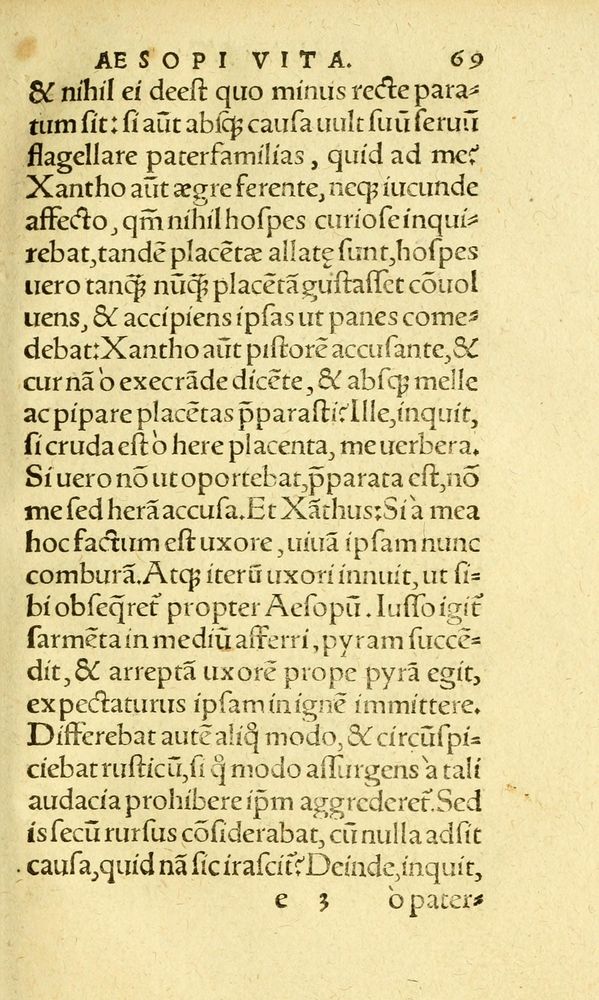 AESOPI VITA. 69
& nihil ei deest quo minus recte para-
tum sit: si aūt absq; causa uult suū seruū
flagellare paterfamilias, quid ad me?
Xantho aūt ægre ferente, neq; iucunde
affecto, qm̄ nihil hospes curiose inqui-
rebat, tandē placētæ allatę sunt, hospes
uero tanq̃ nūq̃ placētā gustasset cōuol
uens, & accipiens ipsas ut panes come-
debat: Xantho aūt pistorē accusante, &
cur nā ò execrāde dicēte, & absq; melle
ac pipare placētas p̄parasti? Ille, inquit,
si cruda est ò here placenta, me uerbera.
Si uero nō ut oportebat, p̄parata est, nō
me sed herā accusa. Et Xāthus: Si à mea
hoc factum est uxore, uiuā ipsam nunc
comburā. Atq; iterū uxori innuit, ut si-
bi obseq̄ret᷑ propter Aesopū. Iusso igit᷑
sarmēta in mediū afferri, pyram succē-
dit, & arreptā uxorē prope pyrā egit,
expectaturus ipsam in ignē immittere.
Differebat autē aliq̊ modo, & circūspi-
ciebat rusticū, si q̊ modo assurgens à tali
audacia prohibere ip̄m aggrederet᷑. Sed
is secū rursus cōsiderabat, cū nulla adsit
causa, quid nā sic irascit᷑? Deinde, inquit,
e 3 ò pater-